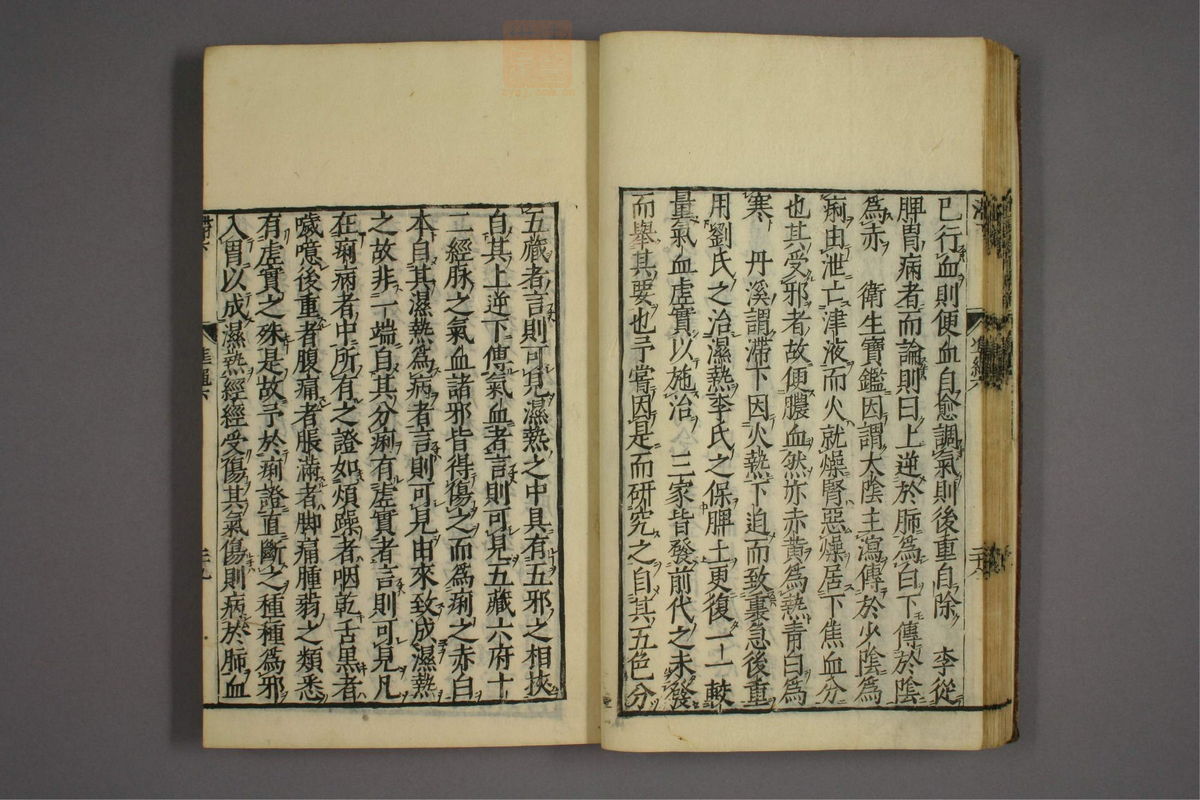 已行血則便血自愈調氣則後重自除　李從
脾胃病者而論則曰上逆於肺爲白下傳於陰
爲赤　衛生寶鑑因謂太陰主瀉傳於少陰爲
痢由泄亡津液而火就燥腎惡燥居下焦血分
也其受邪者故便膿血然亦赤黃爲熱青白爲
寒　丹溪謂滯下因火熱下迫而致裏急後重
用劉氏之治濕熱李氏之保脾土更復一一較
量氣血虛實以施治　三家皆發前代之未發
而舉其要也予嘗因是而研究之自其五色分
五藏者言則可見濕熱之中具有五邪之相挾
自其上逆下傳氣血者言則可見五藏六府十
二經脉之氣血諸邪皆得傷之而爲痢之赤白
本自其濕熱爲病者言則可見由來致成濕熱
之故非一端自其分痢有虛實者言則可見凡
在痢病者中所有之證如煩躁者咽乾舌黑者
噦噫後重者腹痛者脹滿者脚痛腫蒻之類悉
有虛實之殊是故予於痢證直斷之種種爲邪
入胃以成濕熱經經受傷其氣傷則病於肺血